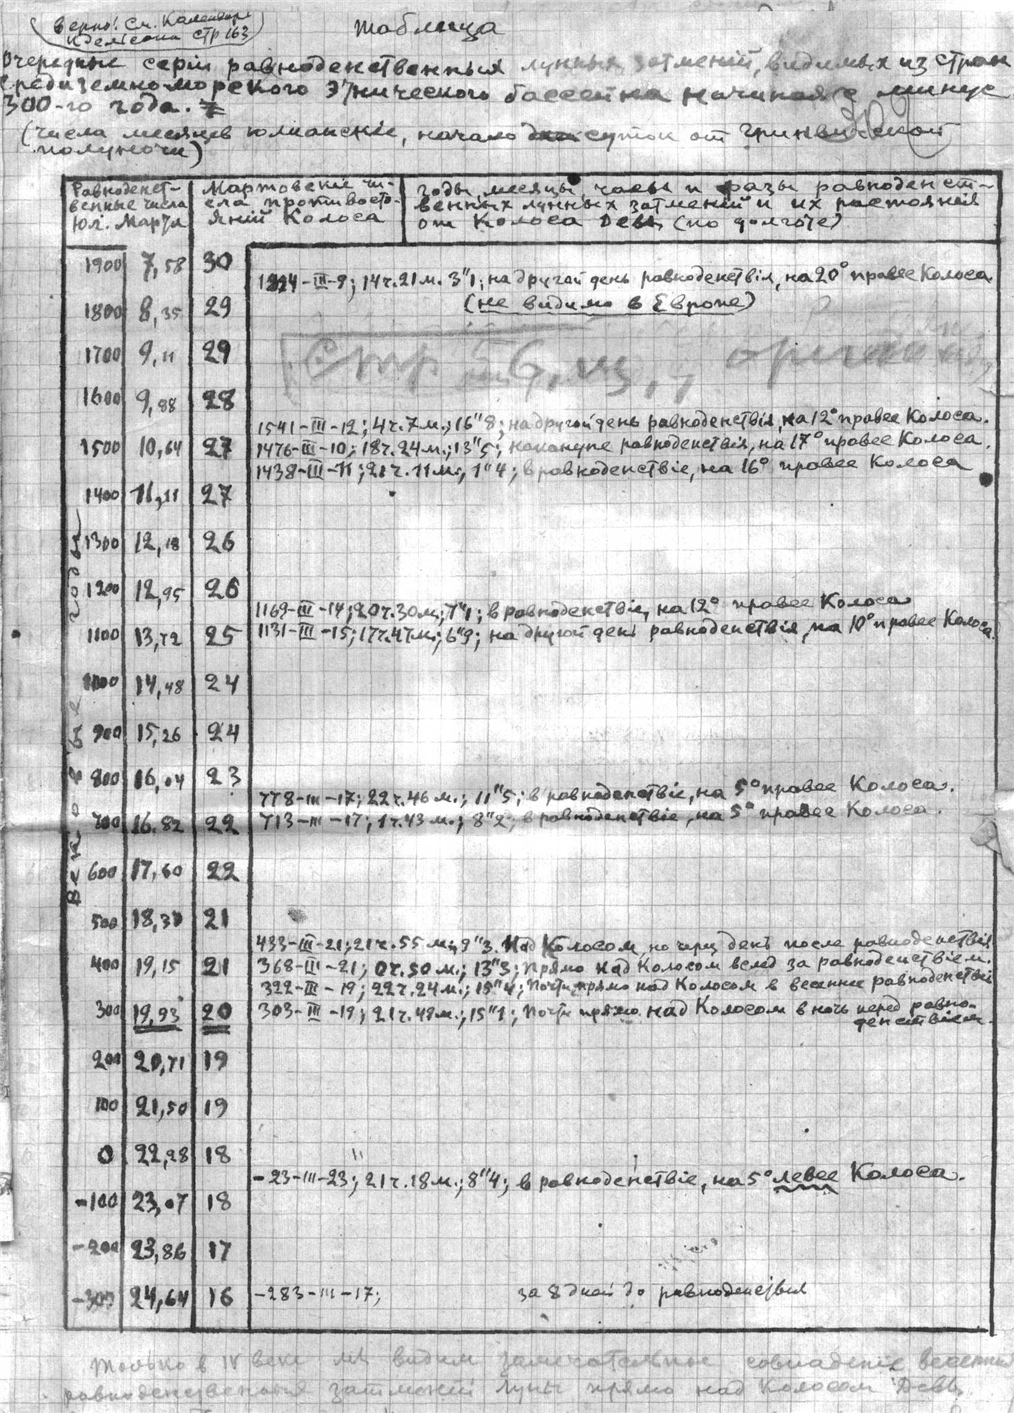 Верно! См. Календарь
стр 163
Таблица
Очередные серіи равноденственных лунных затменій, видимых из стран
Средиземно-морского Этнического бассейна начиная с минус
300-го года.
(числа месяцев юлианскіе, начало суток от Гринвичской
полуночи)
Равноденст-
венные числа
Юл. Марта
Мартовскіе чи-
сла противосто-
яній Колоса
годы, месяцы, часы и фазы равноденст-
венных лунных затменій и их растоянія
от Колоса Девы (по долготе)
Вековые годы
1900 7,58 30
1224-III-9; 14ч.21м. 3"1; на другой день равноденствія, на 20° правее Колоса
(не видимо в Европе)
1800 8,35 29
Стр 56,
1700 9,11 29
1600 9,88 28
1541-III-12; 4ч.7м.; 16"8; на другой день равноденствія, на 12° правее Колоса.
1500 10,64 27
1476-III-10; 18ч.24м.; 13"5; накануне равноденствія, на 17° правее Колоса.
1438-III-11; 21ч.11м., 1"4; в равноденствіе, на 16° правее Колоса
1400 11,11 27
1300 12,18 26
1200 12,95 26
1169-III-14; 20ч.30м; 7"1; в равноденствіе, на 12° правее Колоса
1100 13,72 25
1131-III-15; 17ч.47м; 6"9; на другой день равноденствія, на 10° правее Колоса.
1000 14,48 24
900 15,26 24
800 16,04 23
778-III-17; 22ч.46м.; 11"5; в равноденствіе, на 5° правее Колоса.
700 16.82 22
713-III-17; 1ч.43м.; 8"2; в равноденствіе, на 5° правее Колоса.
600 17,60 22
500 18,37 21
433-III-21; 21ч.55м., 9"3. Над Колосом, но чрез день после равноденствія
400 19,15 21
368-III-21; 0ч.50м.; 13"3; Прямо над Колосом вслед за равноденствіем.
322-III-19; 22ч.24м.; 15"4; Почти прямо над Колосом в весенне равноденствіе
300 19,93 20
303-III-19; 21ч.48м.; 15"1; Почти прямо над Колосом в ночь перед равно-
денствіем.
200 20,71 19
100 21,50 19
0 22,28 18
-23-III-23; 21ч.18м.; 8"4; в равноденствіе, на 5° левее Колоса.
-100 23,07 18
-200 23,86 17
-300 24,64 16
-283-III-17; за 8 дней до равноденствія
Только в IV веке мы видим замечательное совпаденіе весенних
равноденственных затменій Луны прямо над Колосом Девы